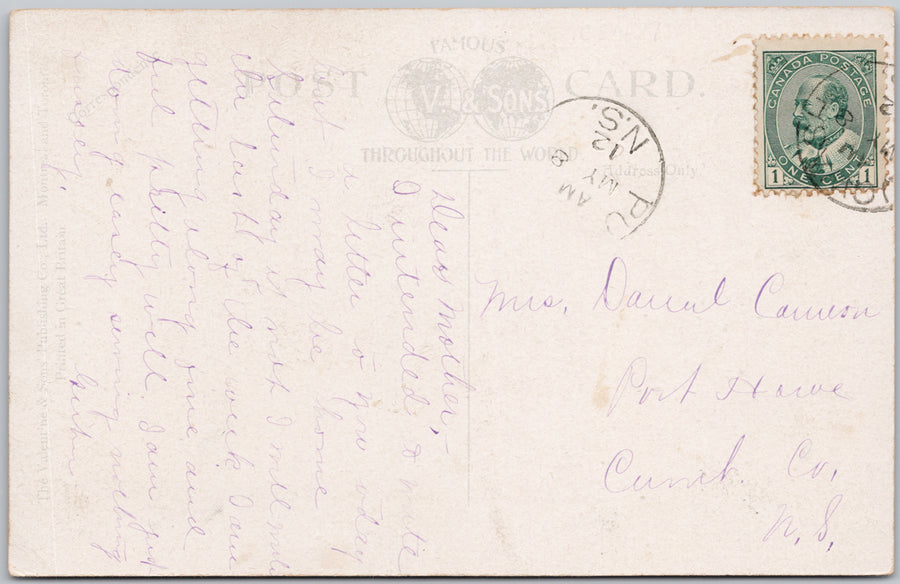 FAMOUS
POST CARD.
V. & SONS
THROUGHOUT THE WORLD
Address Only
The Valentine & Sons Publishing Co., Ltd. Montreal and Toronto
Printed in Great Britain
CANADA POSTAGE
1 ONE CENT 1
N.S.
12
MY
AM
Dear Mother,-
I intended to write
a letter to you today
but I may be home
Saturday if not I will write
the last of the week. I am
getting along fine and
feel pretty well. I am just
doing easy sewing nothing
Mrs. Daniel Cameron
Port Howe
Cumb. Co,
N.S,